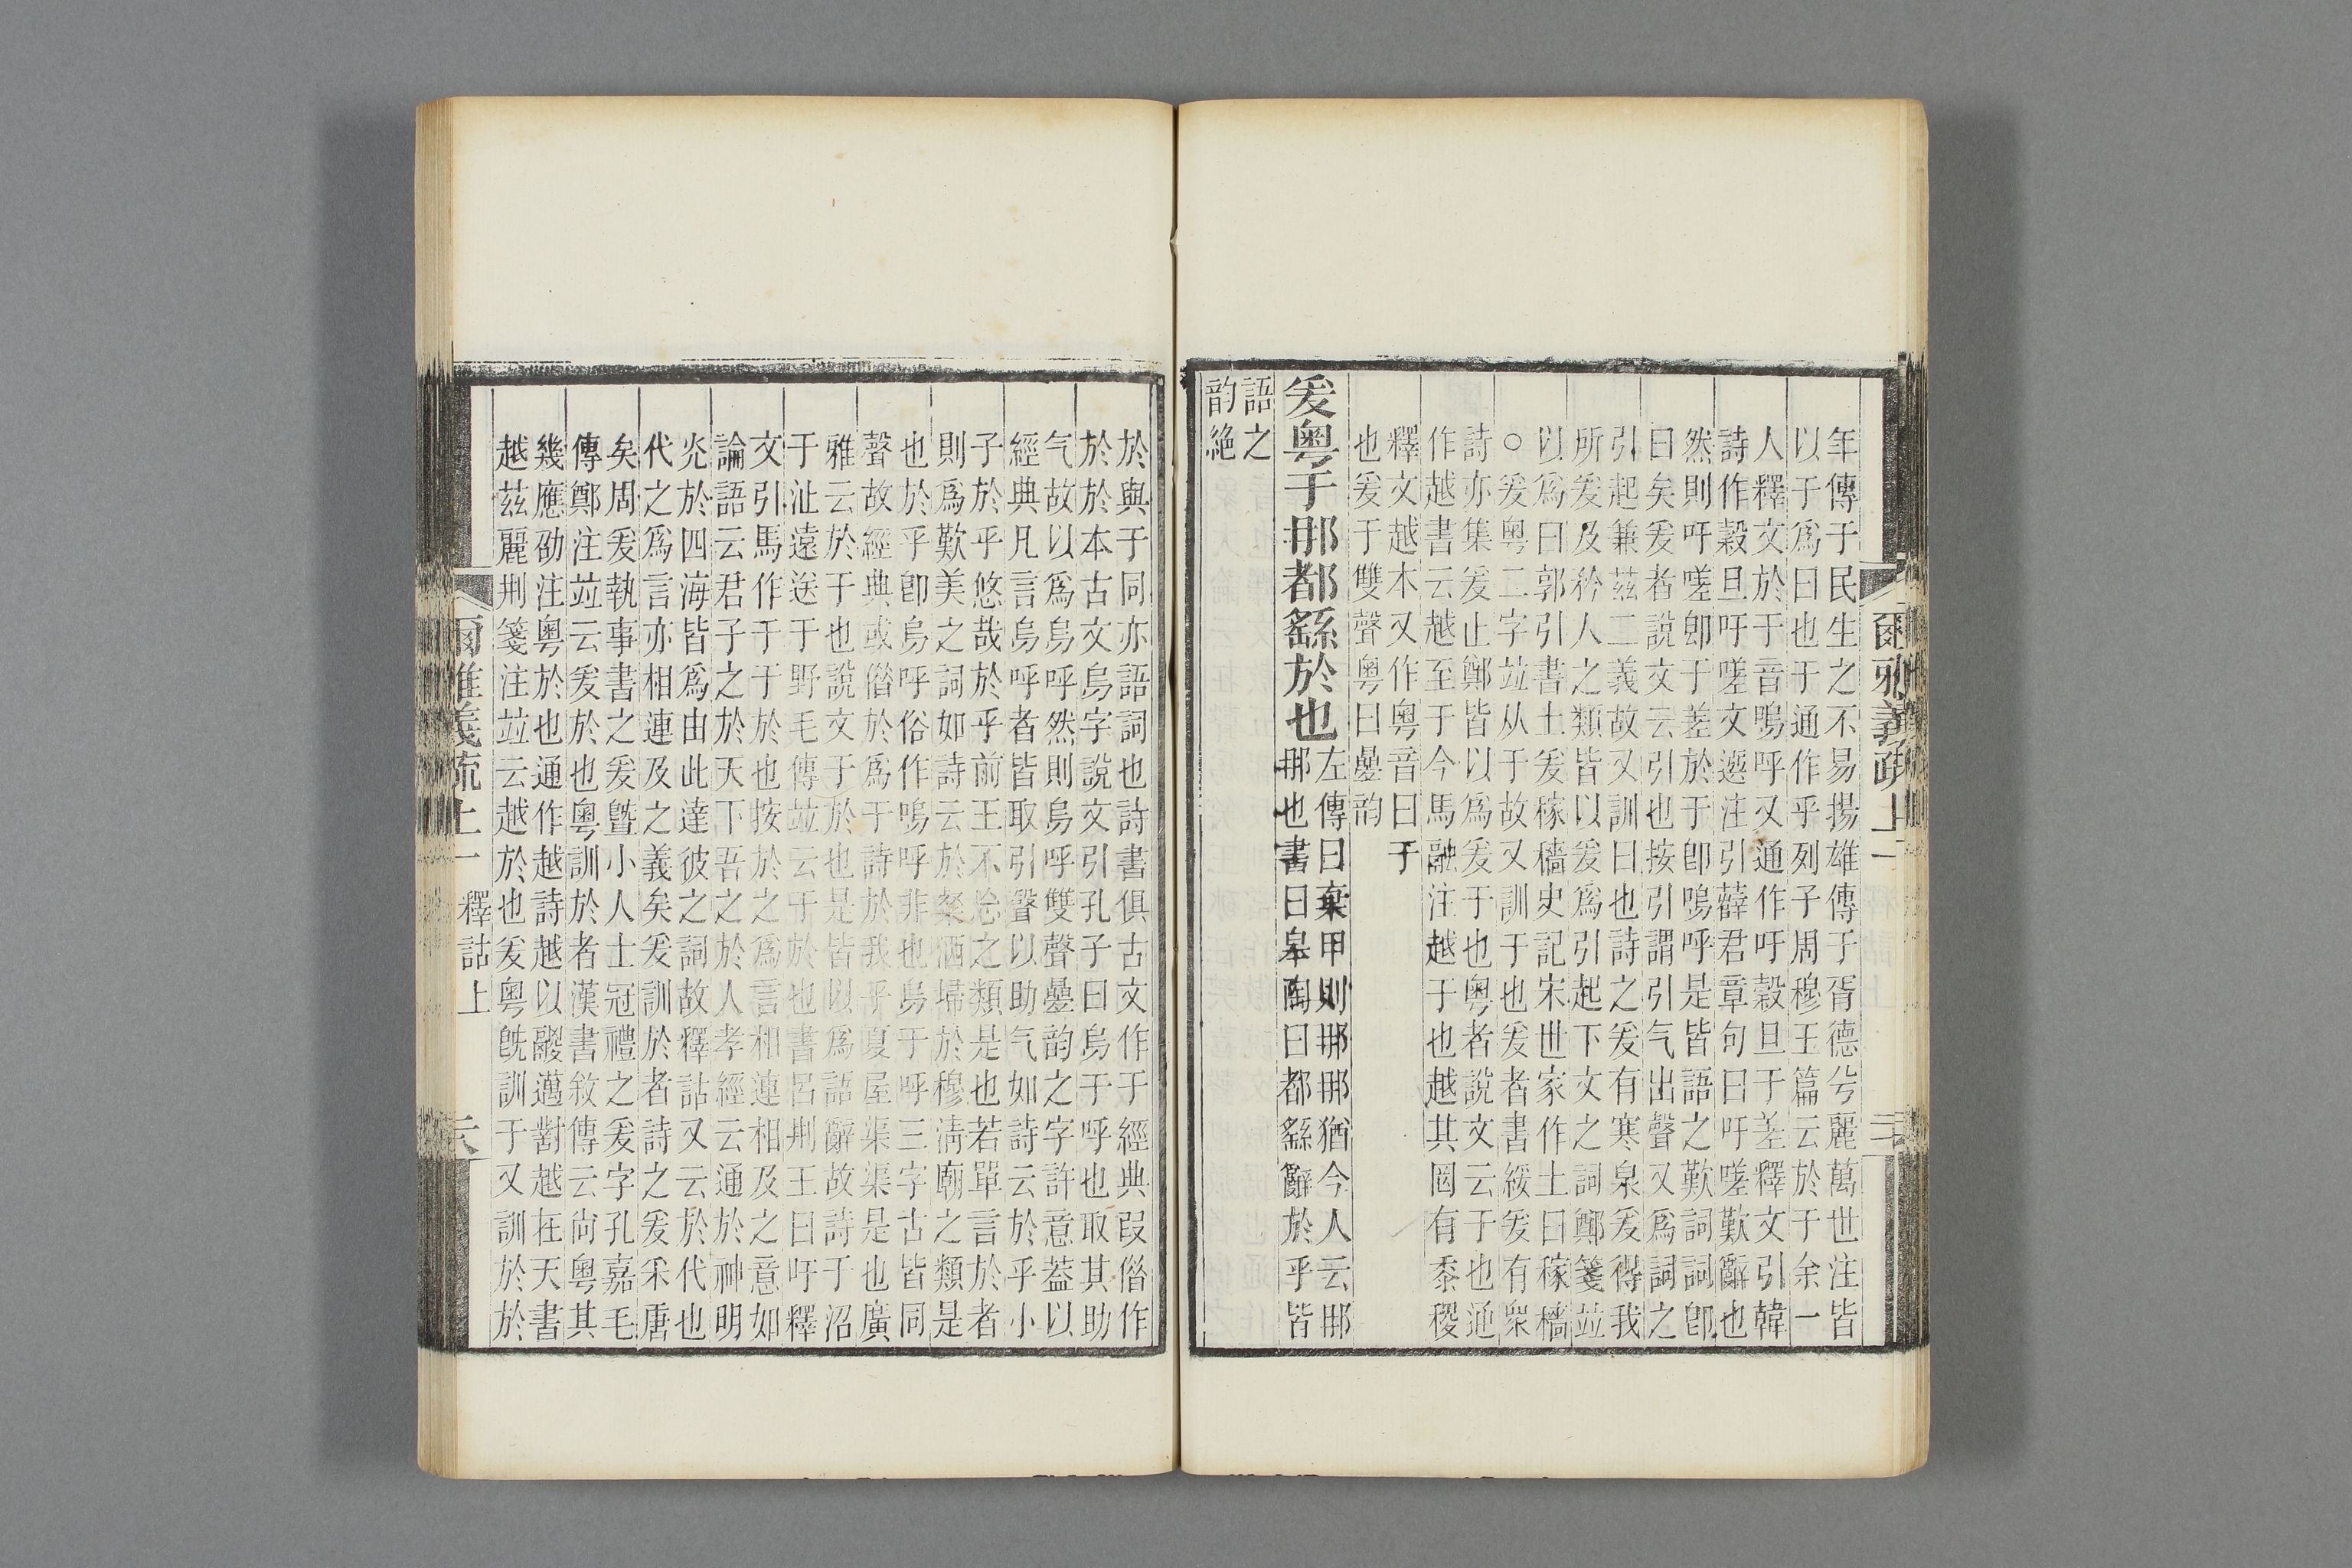 爾雅義疏上一
年傳子民生之不易揚雄傳子胥德兮麗萬世注皆
以于爲曰也于通作乎列子周穆王篇云於于余一
人釋文於于音嗚呼又通作吁穀旦于差釋文引韓
詩作穀旦吁嗟文選注引薛君章句曰吁嗟歎辭也
然則吁嗟卽于差於于卽嗚呼是皆語之歎詞詞卽
曰矣爰者說文云引也按引謂引气出聲又爲詞之
引起兼茲二義故又訓曰也詩之爰有寒泉爰得我
所爰及矜人之類皆以爰爲引起下文之詞鄭箋竝
以爲曰郭引書土爰稼穡史記宋世家作土曰稼穡
○爰粵二字竝从于故又訓于也爰者書綏爰有衆
詩亦集爰止鄭皆以爲爰于也粵者說文云于也通
作越書云越至于今馬融注越于也越其罔有黍稷
釋文越本又作粵音曰于
也爰于雙聲粵曰曡韵
爰粵于那都繇於也
左傳曰棄甲則那那猶今人云那
那也書曰皋陶曰都繇辭於乎皆
語之
韵絶
於與于同亦語詞也詩書俱古文作于經典叚偺作
於於本古文烏字說文引孔子曰烏于呼也取其助
气故以爲烏呼然則烏呼雙聲曡韵之字許意葢以
經典凡言烏呼者皆取引聲以助气如詩云於乎小
子於乎悠哉於乎前王不忘之類是也若單言於者
則爲歎美之詞如詩云於粲洒埽於穆淸廟之類是
也於乎卽烏呼俗作嗚呼非也烏于呼三字古皆同
聲故經典或偺於爲于詩於我乎夏屋渠渠是也廣
雅云於于也說文于於也是皆以爲語辭故詩于沼
于沚遠送于野毛傳竝云于於也書呂刑王曰吁釋
文引馬作于于於也按於之爲言相連相及之意如
論語云君子之於天下吾之於人孝經云通於神明
光於四海皆爲由此達彼之詞故釋詁又云於代也
代之爲言亦相連及之義矣爰訓於者詩之爰采唐
矣周爰執事書之爰曁小人士冠禮之爰字孔嘉毛
傳鄭注竝云爰於也粵訓於者漢書敘傳云尙粵其
幾應劭注粵於也通作越詩越以鬷邁對越在天書
越茲麗刑箋注竝云越於也爰粵旣訓于又訓於於
爾雅義疏上一
釋詁上